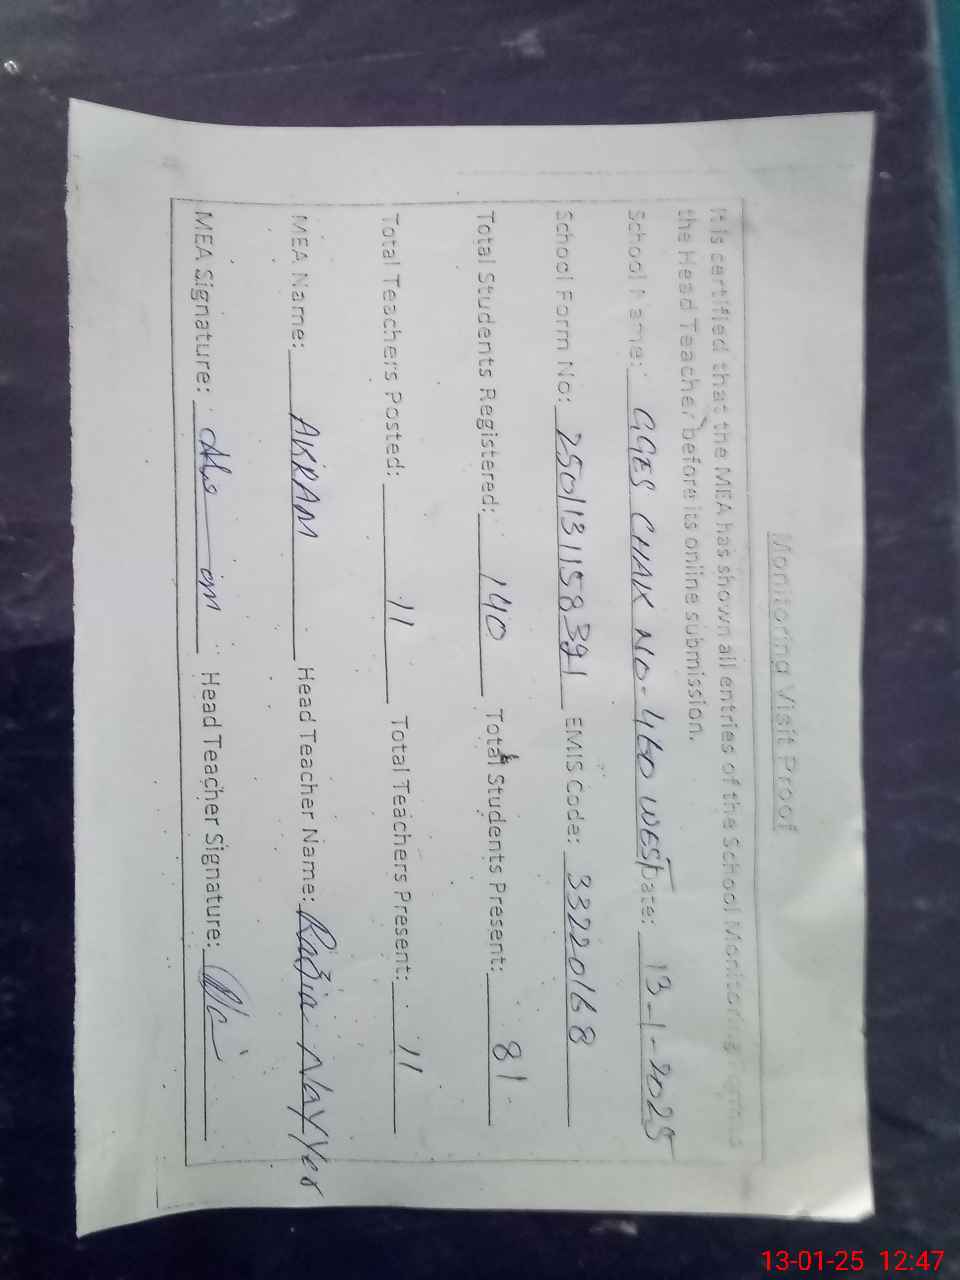 Monitoring Visit Proof
It is certified that the MEA has shown all entries of the School Monitoring Forms to
the Head Teacher before its online submission.
School Name: GGES CHAK NO-460 WEST Date: 13-1-2025
School Form No: 2501131158391 EMIS Code: 33220168
Total Students Registered: 140 Total Students Present: 81
Total Teachers Posted: 11 Total Teachers Present: 11
MEA Name: AKRAM Head Teacher Name: Razia Nayyer
MEA Signature: Head Teacher Signature:
13-01-25 12:47